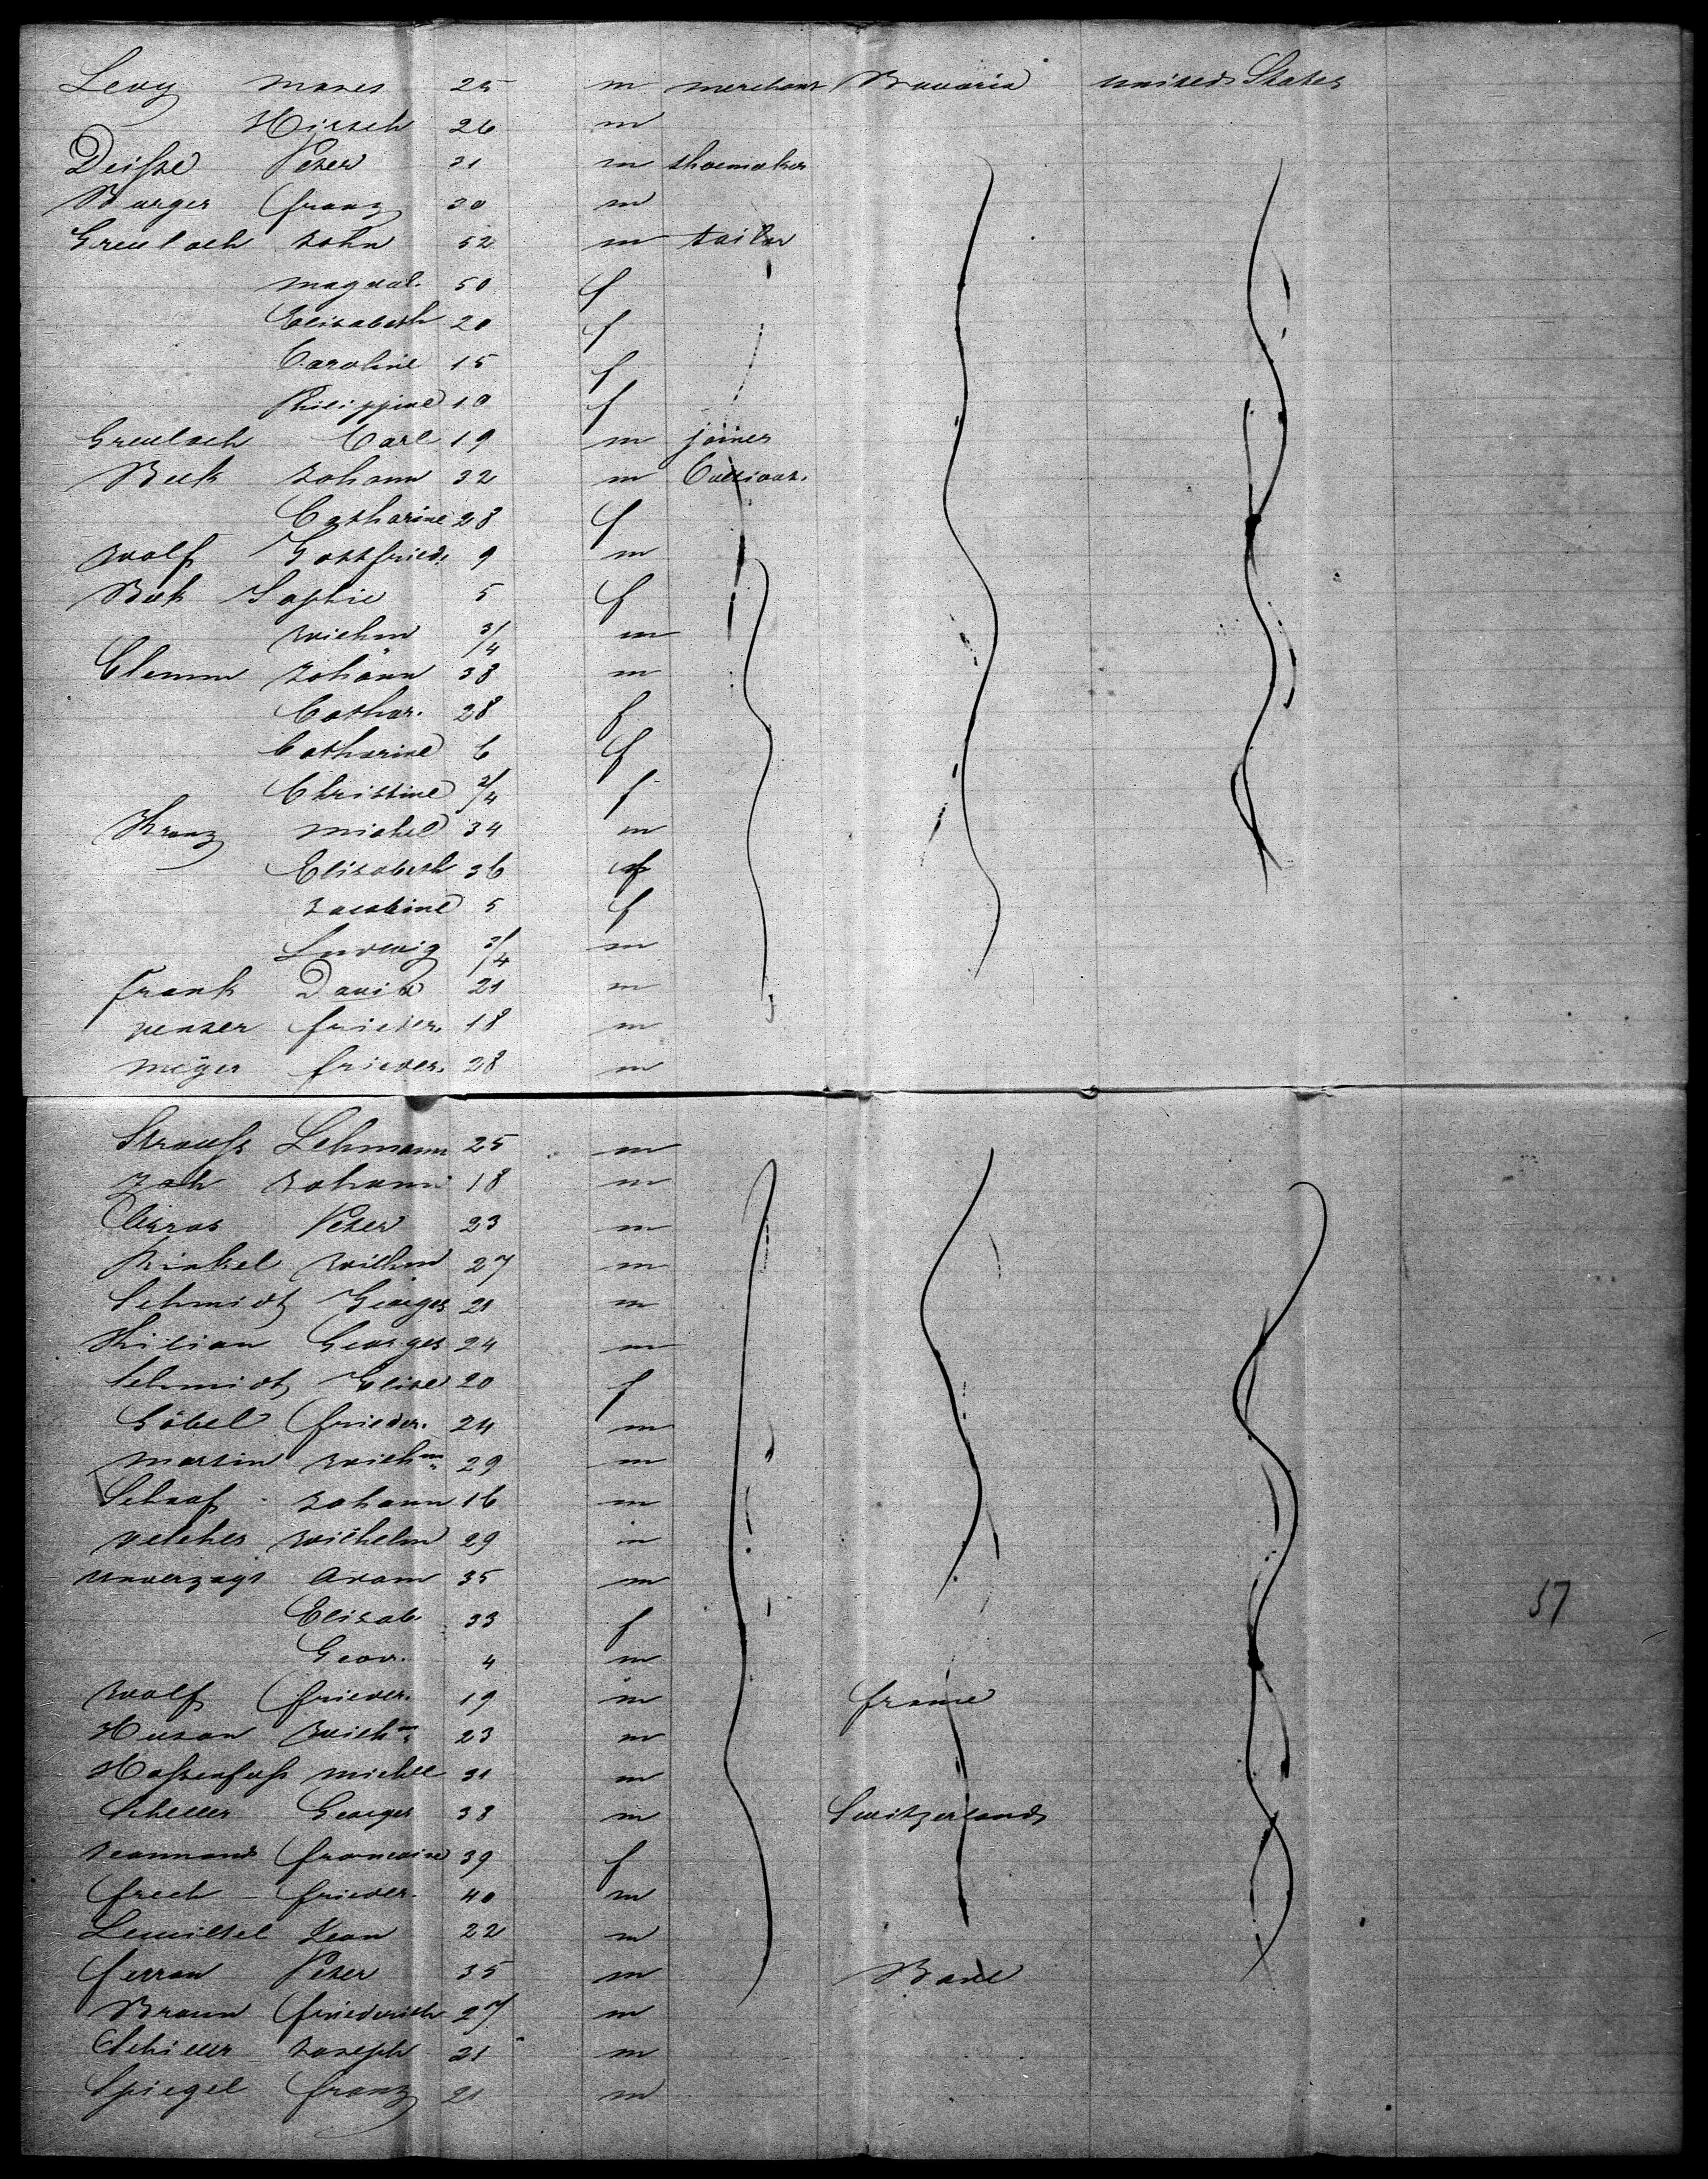 Levy Moses 25 m merchant Bavaria United States
Hirsch 26 m
Deißre Peter 31 m shoemaker
Burger Franz 30 m
Greulach John 52 m tailor
Magdal. 50 f
Elisabeth 20 f
Caroline 15 f
Philippine 10 f
Greulach Carl 19 m joiner
Beck Johann 32 m Cultivat.
Catharine 28 f
Wolf Gottfried 9 m
Beck Sophie 5 f
Wilhm 3/4 m
Clemm Johann 38 m
Cathar. 28 f
Catharine 6 f
Christine 3/4 f
Kranz Michel 34 m
Elisabeth 36 f
Jacobine 5 f
Ludwig 3/4 m
Frank David 21 m
Frieder. 18 m
Meÿer Frieder. 28 m
Strauß Lehmann 25 m
Johann 18 m
Peter 23 m
Kinkel Wilhm 27 m
Schmidt Georges 21 m
Kilian Georges 24 m
Schmidt Elise 20 f
Göbel Frieder. 24 m
Martin Wilhm 29 m
Schaaf Johann 16 m
Welcher Wilhelm 29 m
Unverzagt Adam 35 m
Elisab. 33 f
57
Geor. 4 m
Wolf Frieder. 19 m France
Huson Wilhm 23 m
Haßenfuß Michel 31 m
Scheller Georges 38 m Switzerland
Jeannand Francoise 39 f
Frech Frieder. 40 m
Jean 22 m
Ferran Peter 35 m Bade
Braun Friederich 27 m
Schiller Joseph 21 m
Spiegel Franz 21 m